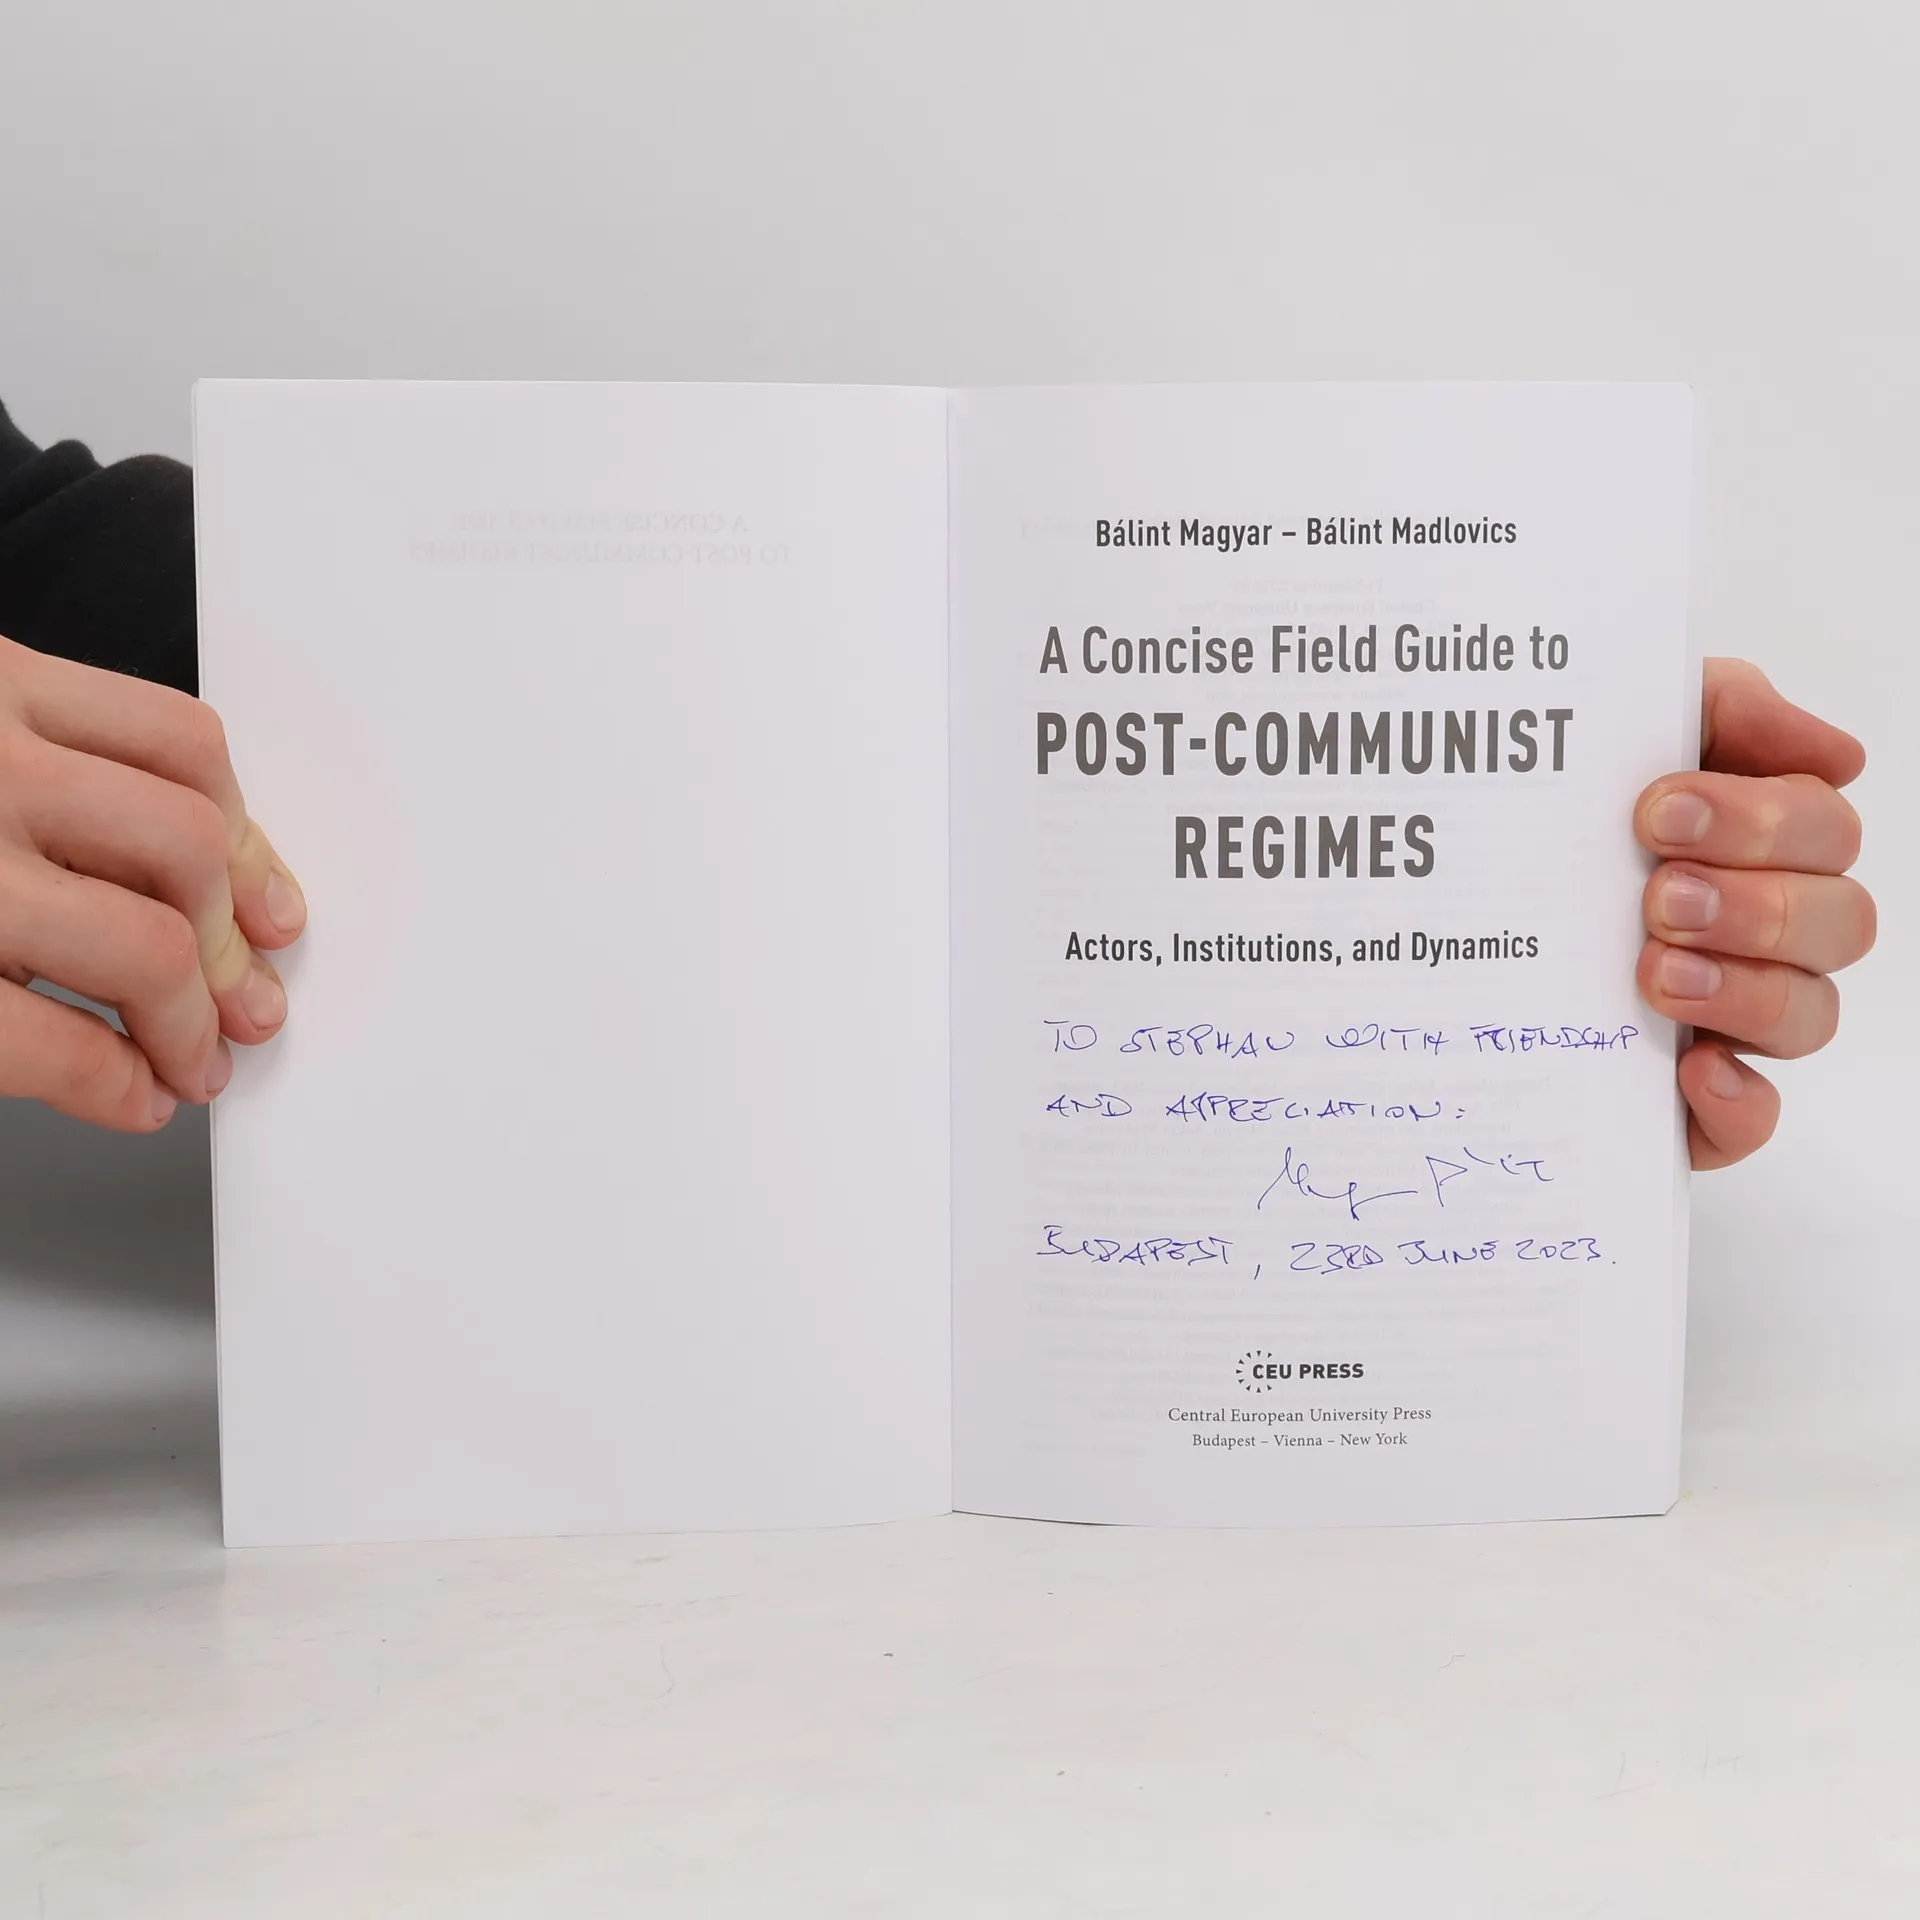 A CONCISE FIELD GUIDE
TO POST-COMMUNIST REGIMES
Bálint Magyar – Bálint Madlovics
A Concise Field Guide to
POST-COMMUNIST
REGIMES
Actors, Institutions, and Dynamics
TO STEPHAN WITH FRIENDSHIP
AND APPRECIATION:
BUDAPEST, 23RD JUNE 2023.
CEU PRESS
Central European University Press
Budapest – Vienna – New York